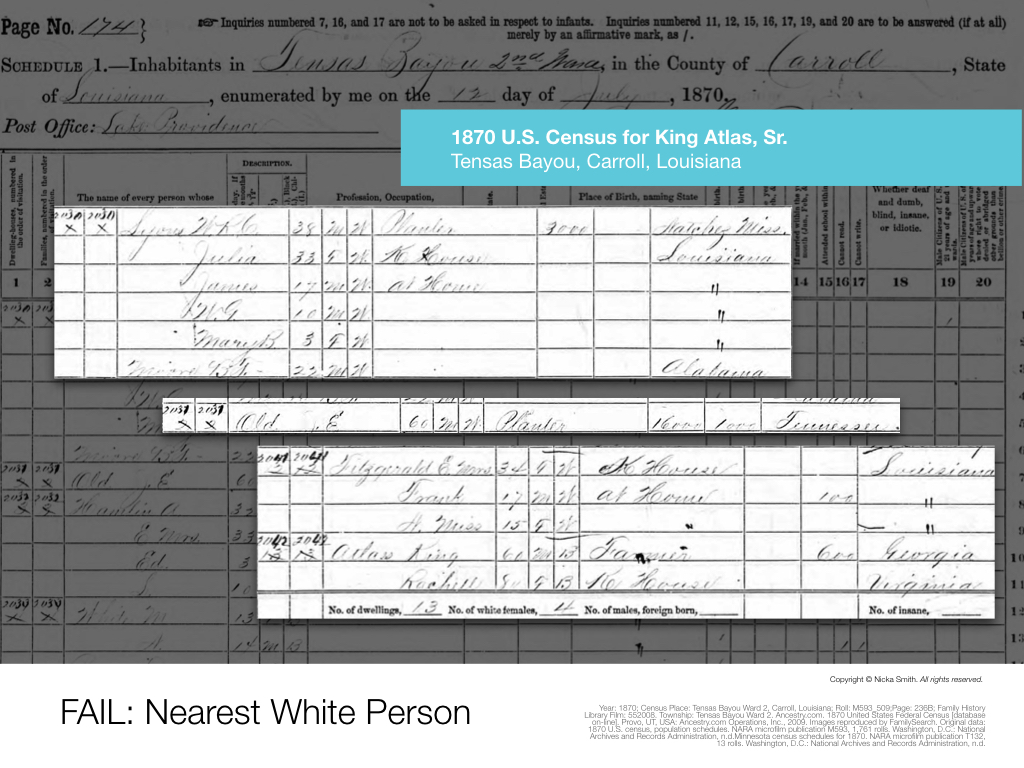 Page No. 174}
☞ Inquiries numbered 7, 16, and 17 are not to be asked in respect to infants. Inquiries numbered 11, 12, 15, 16, 17, 19, and 20 are to be answered (if at all)
merely by an affirmative mark, as /.
SCHEDULE 1.—Inhabitants in Tensas Bayou 2nd Ward, in the County of Carroll, State
of Louisiana, enumerated by me on the 12 day of July, 1870.
Post Office: Lake Providence
1870 U.S. Census for King Atlas, Sr.
Tensas Bayou, Carroll, Louisiana
DESCRIPTION.
The name of every person whose Profession, Occupation, Place of Birth, naming State
Whether deaf
and dumb,
blind, insane,
or idiotic.
Dwelling-houses, numbered in the order of visitation.
Families, numbered in the order
Attended school within
Cannot read.
Cannot write.
1 2 14 15 16 17 18 19 20
38 M W Planter 3000 Natchez Miss.
Julia 33 F W K House Louisiana
James 17 M W at Home "
W.G. 10 M W "
Mary B. 3 F W "
22 M W Alabama
Old E 60 M W Planter 16000 1000 Tennessee
Fitzgerald E Mrs 34 F W K House Louisiana
Frank 17 M W at Home 100 "
A. Miss 15 F W " "
2042 2042 Atlas King 60 M B Farmer 600 Georgia
F B K House Virginia
No. of dwellings, 13 No. of white females, 4 No. of males, foreign born, No. of insane,
Hamlin A
E Mrs.
Ed.
FAIL: Nearest White Person
Copyright © Nicka Smith. All rights reserved.
Year: 1870; Census Place: Tensas Bayou Ward 2, Carroll, Louisiana; Roll: M593_509; Page: 236B; Family History
Library Film: 552008. Township: Tensas Bayou Ward 2. Ancestry.com. 1870 United States Federal Census [database
on-line]. Provo, UT, USA: Ancestry.com Operations, Inc., 2009. Images reproduced by FamilySearch. Original data:
1870 U.S. census, population schedules. NARA microfilm publication M593, 1,761 rolls. Washington, D.C.: National
Archives and Records Administration, n.d.Minnesota census schedules for 1870. NARA microfilm publication T132,
13 rolls. Washington, D.C.: National Archives and Records Administration, n.d.